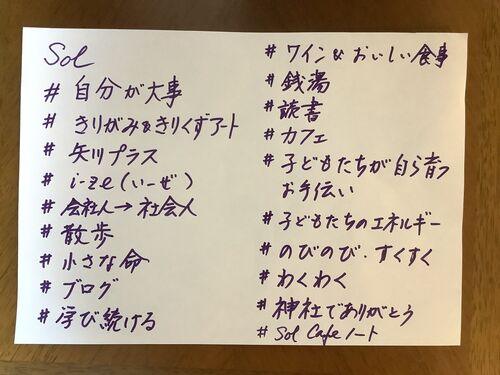 Sol
# 自分が大事
# きりがみ&きりくずアート
# 矢川プラス
# i-ze(いーぜ)
# 会社人→社会人
# 散歩
# 小さな命
# ブログ
# 学び続ける
# ワイン&おいしい食事
# 銭湯
# 読書
# カフェ
# 子どもたちが自ら育つ
お手伝い
# 子どもたちのエネルギー
# のびのび・すくすく
# わくわく
# 神社でありがとう
# Sol Cafe ノート